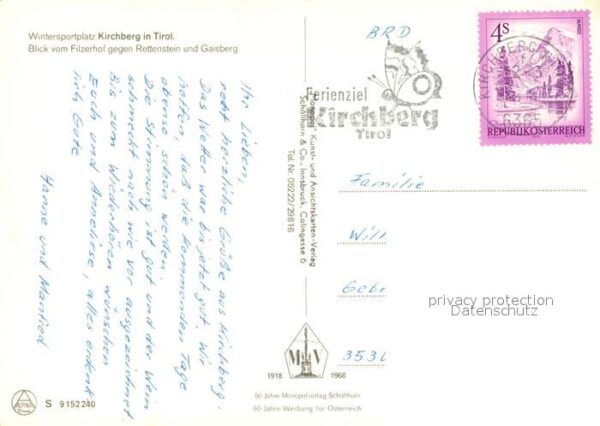 Wintersportplatz Kirchberg in Tirol.
Blick vom Filzerhof gegen Rettenstein und Gaisberg
Ihr Lieben,
recht herzliche Grüße aus Kirchberg.
Das Wetter war bis jetzt gut. Wir
hoffen, daß die kommenden Tage
ebenso schön werden.
Die Stimmung ist gut und der Wein
schmeckt nach wie vor ausgezeichnet.
Bis zum Wiederhören wünschen
Euch und Anneliese, alles erdenk-
lich Gute
Hanne und Manfred
S 9152240
"Monopol" Kunst- und Ansichtskarten-Verlag
Schöllhorn & Co., Innsbruck, Colingasse 6
Tel. Nr. 05222/29816
BRD
Ferienziel
Kirchberg
Tirol
4S
ALMSEE
REPUBLIK ÖSTERREICH
KIRCHBERG
6365
Familie
Will
Gebr
privacy protection
Datenschutz
353
M V
1918 1968
50 Jahre Monopolverlag Schöllhorn
50 Jahre Werbung für Österreich